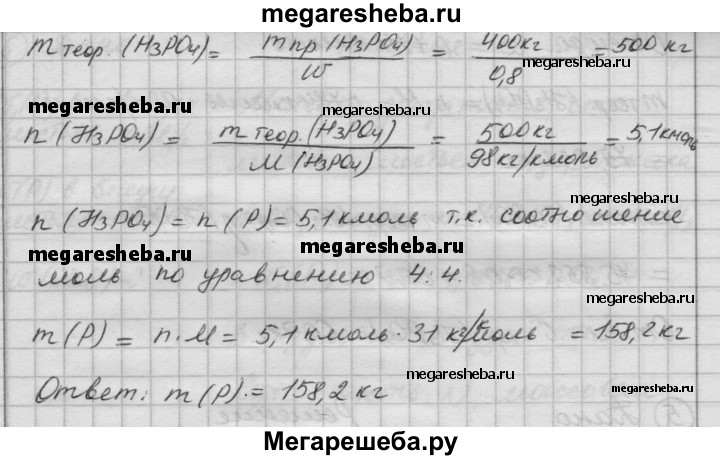 megaresheba.ru
m теор. (H3PO4) = m пр (H3PO4) / W = 400кг / 0,8 = 500 кг
megaresheba.ru
megaresheba.ru
n (H3PO4) = m теор. (H3PO4) / M (H3PO4) = 500кг / 98кг/кмоль = 5,1 кмоль
megaresheba.ru
n (H3PO4) = n (P) = 5,1 кмоль т.к. соотношение
megaresheba.ru
megaresheba.ru
моль по уравнению 4:4.
megaresheba.ru
m (P) = n·M = 5,1 кмоль · 31 кг/моль = 158,2 кг
megaresheba.ru
Ответ: m (P). = 158,2 кг
megaresheba.ru
Мегарешеба.ру